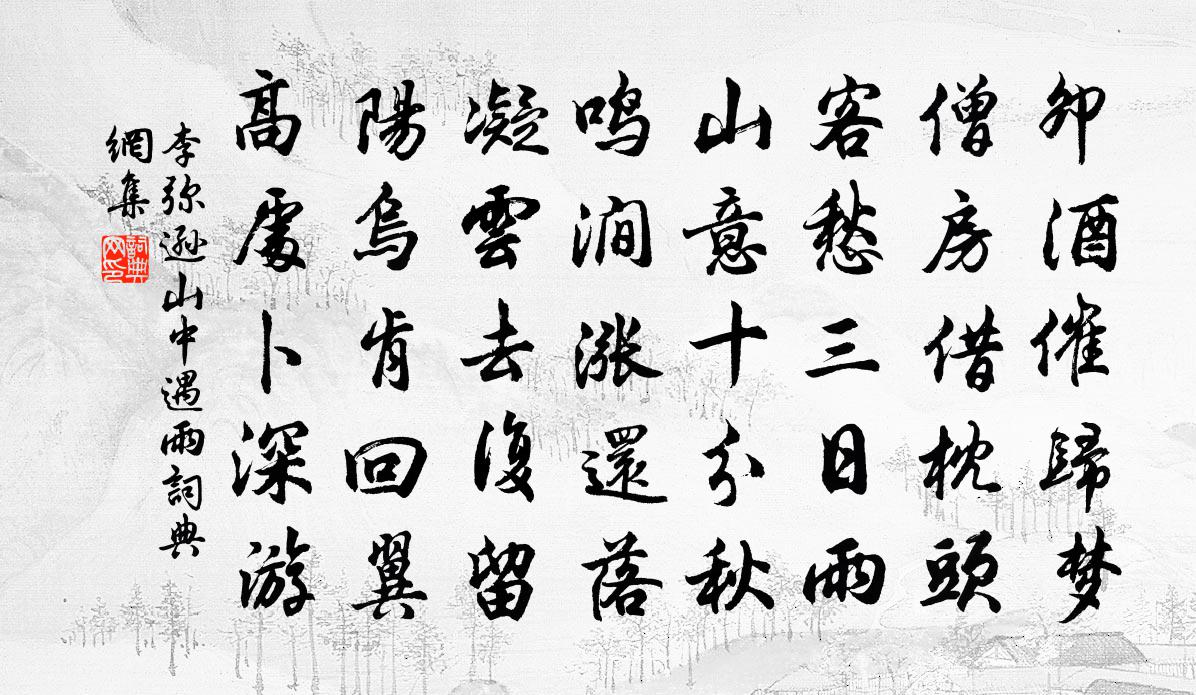 卯酒催歸梦
僧房借枕頭
客愁三日雨
山意十分秋
鸣澗涨還落
凝雲去復留
陽烏肯回翼
高處卜深游
李弥遜山中遇雨詞典
網集
詞典網印